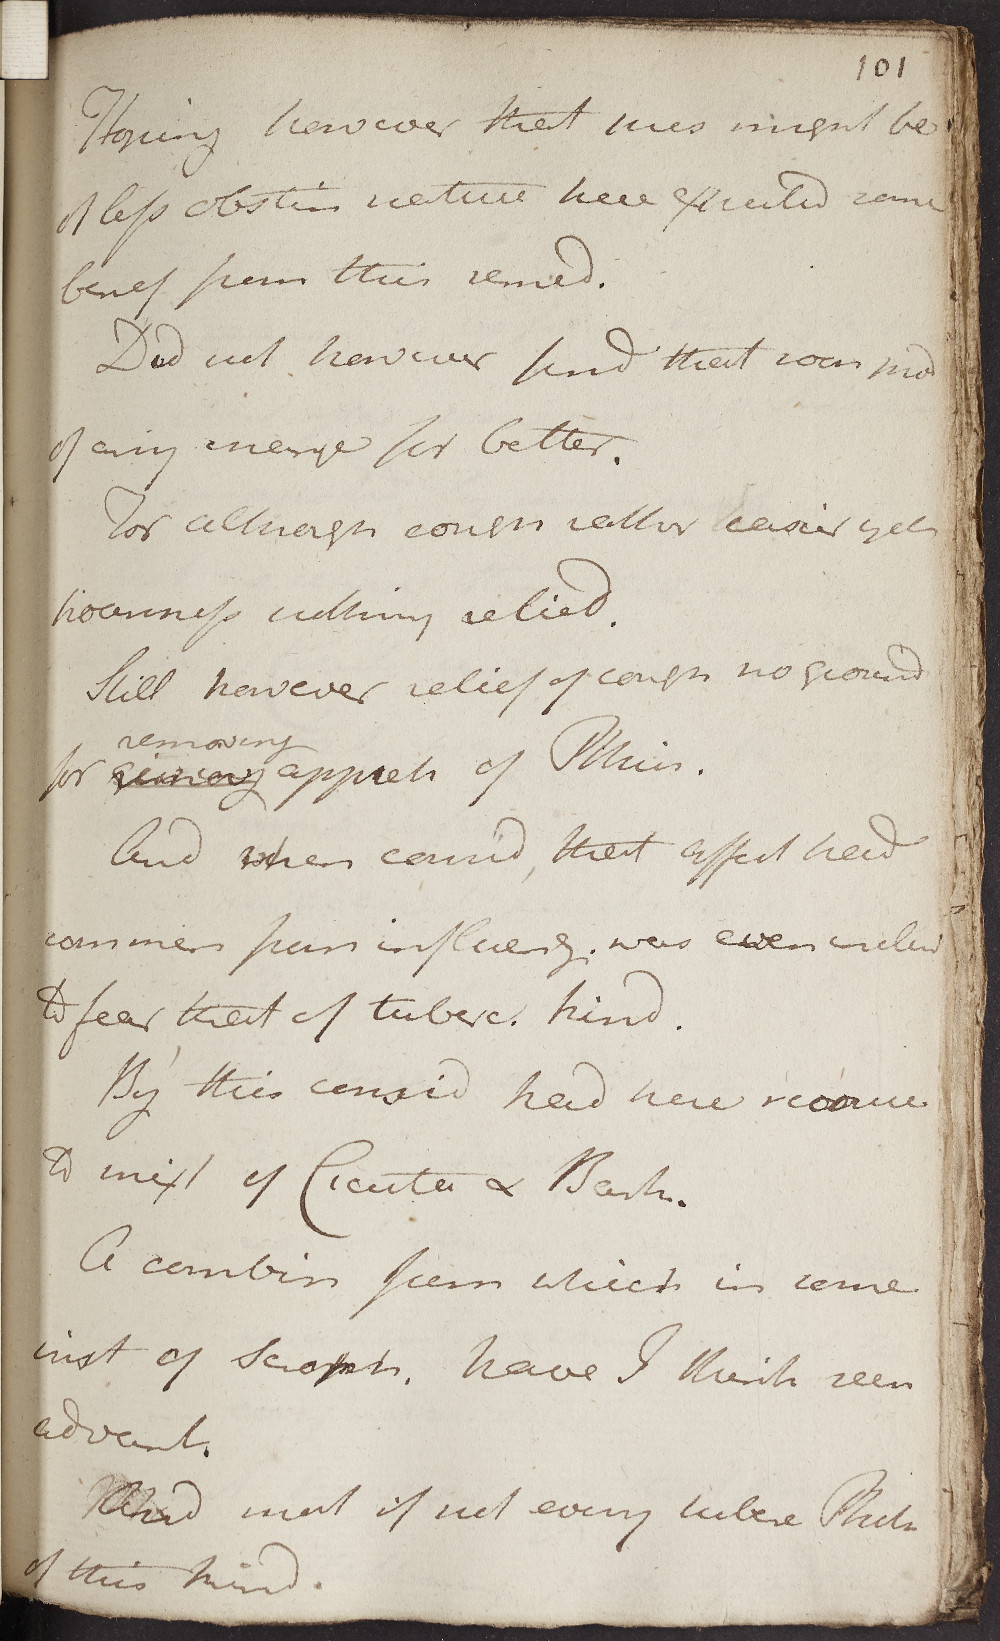 101
Hoping however that this might be
of less obstin nature have expected some
benef from this remed.
Did not however find that was prod
of any change for better.
For although cough rather easier yet
hoarsness nothing relied.
Still however relief of cough no ground
removing
for giving appreh of Phthis.
And when consid, that affect had
common from influenz. was even inclin
to fear that of tuberc. kind.
By this consid had here recourse
to mixt of Cicuta & Bark.
A combin from which in some
inst of Scroph. have I think seen
advant.
And most if not every tuberc Phth
of this kind.